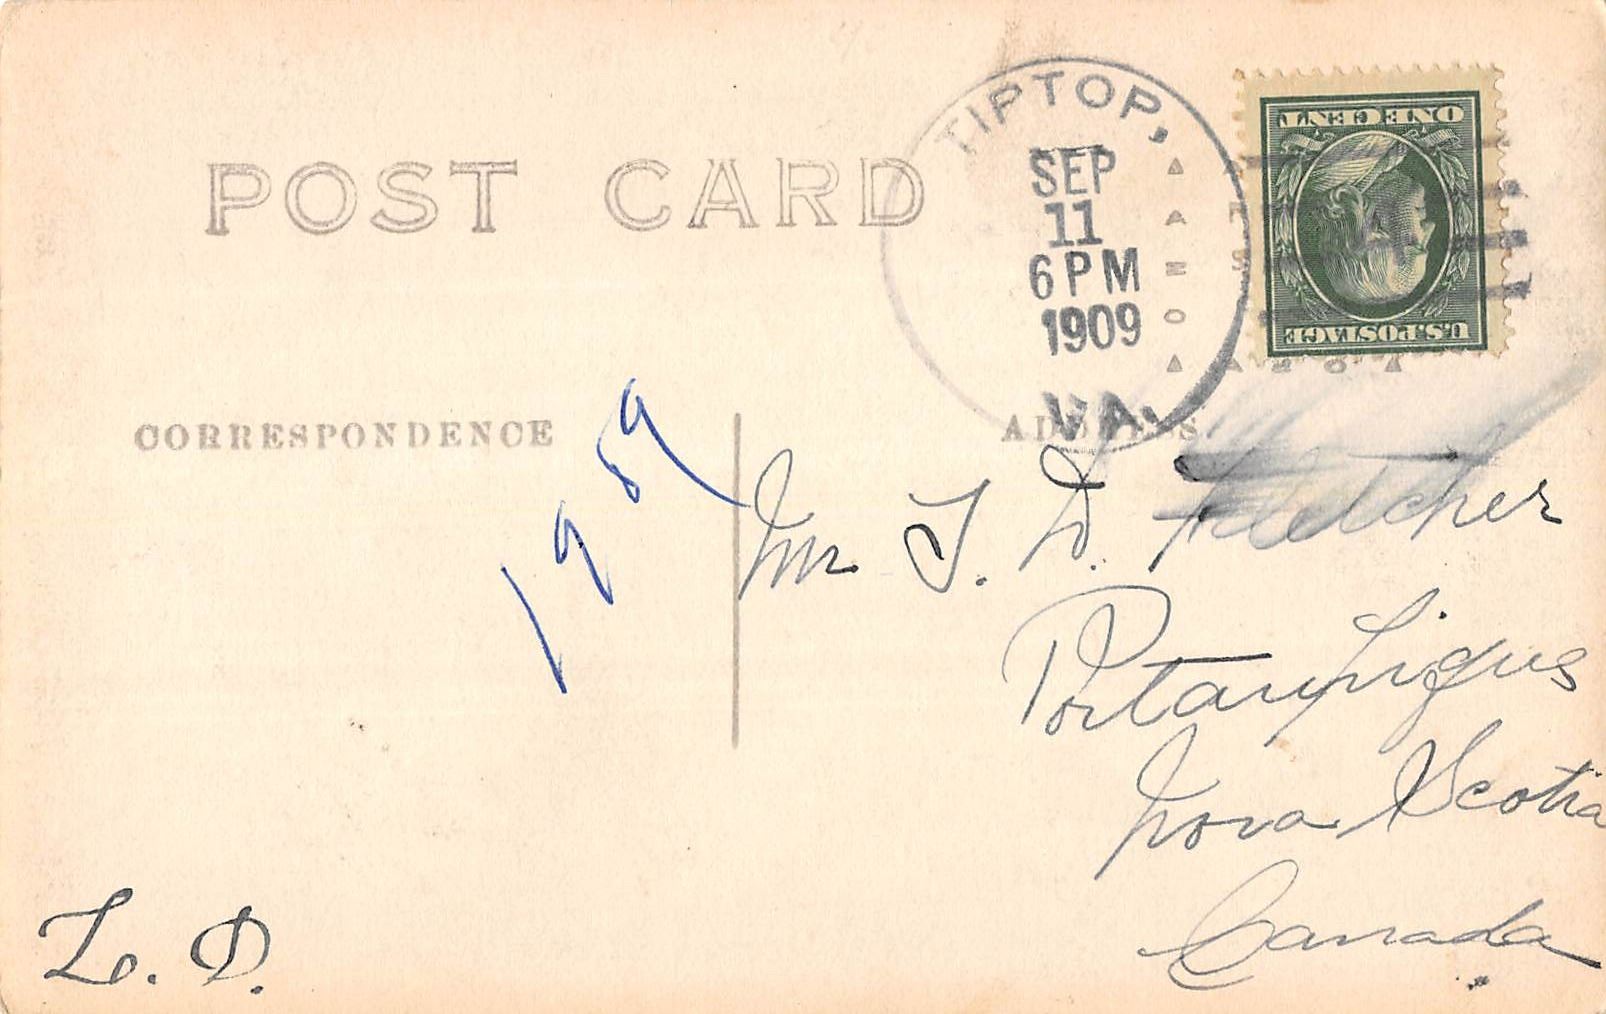 POST CARD
TIPTOP,
SEP
11
6 PM
1909
VA.
ONE CENT
U.S. POSTAGE
AZOV
CORRESPONDENCE
ADDRESS
1909
Mr T. D. Fletcher
Portaupique
Nova Scotia
Canada
L. D.